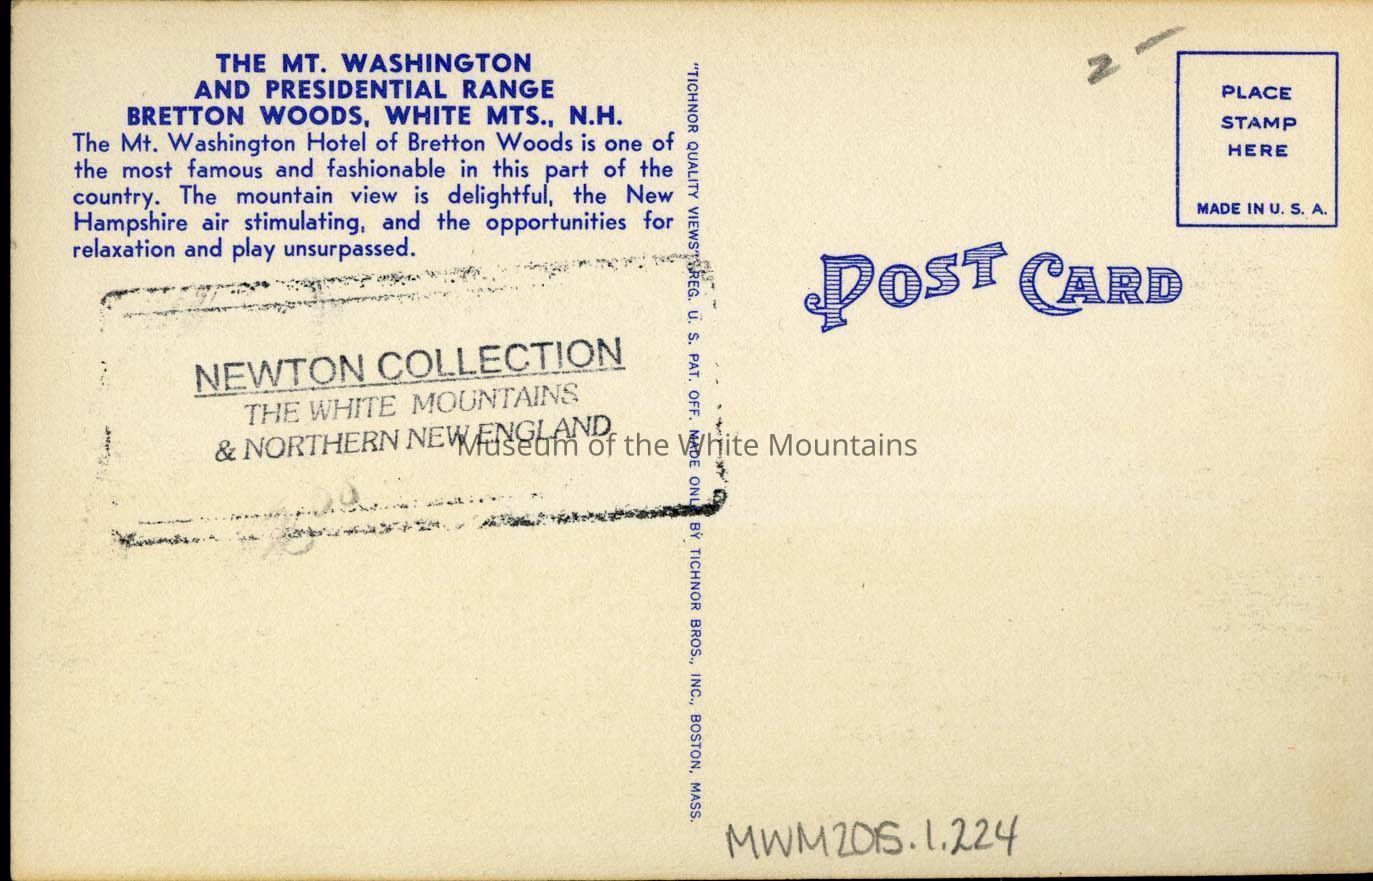 THE MT. WASHINGTON
AND PRESIDENTIAL RANGE
BRETTON WOODS, WHITE MTS., N.H.
The Mt. Washington Hotel of Bretton Woods is one of
the most famous and fashionable in this part of the
country. The mountain view is delightful, the New
Hampshire air stimulating, and the opportunities for
relaxation and play unsurpassed.
NEWTON COLLECTION
THE WHITE MOUNTAINS
& NORTHERN NEW ENGLAND
"TICHNOR QUALITY VIEWS" REG. U. S. PAT. OFF. MADE ONLY BY TICHNOR BROS., INC., BOSTON, MASS.
2 -
PLACE
STAMP
HERE
MADE IN U. S. A.
POST CARD
Museum of the White Mountains
MWM2015.1.224